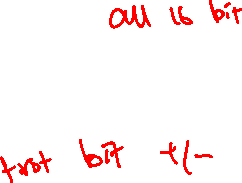 all 16 bit
first bit +/-